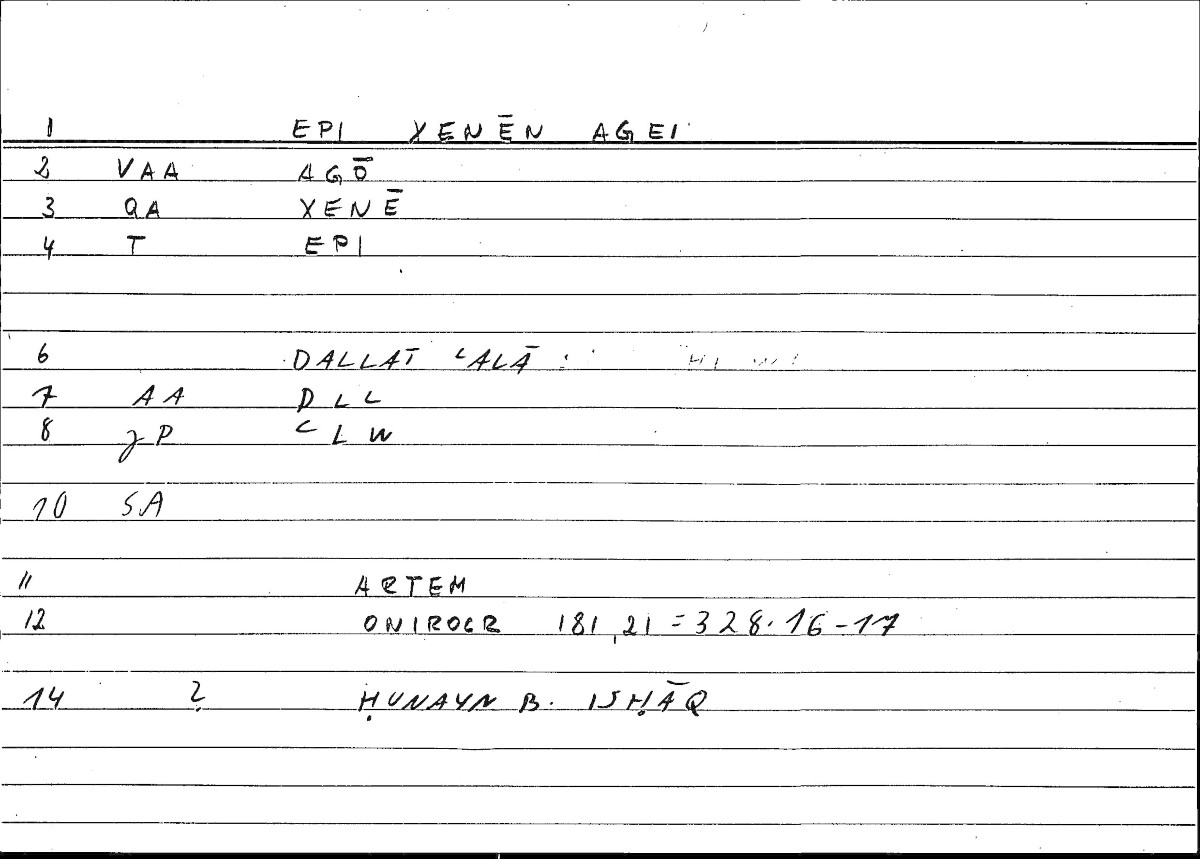 1 EPI XENĒN AGEI
2 VAA AGŌ
3 QA XENĒ
4 T EPI
6 DALLAT ʿALĀ
7 AA DLL
8 gP ʿLW
10 SA
11 ARTEM
12 ONIROCR 181,21 = 328.16-17
14 ? ḤUNAYN B. ISḤĀQ